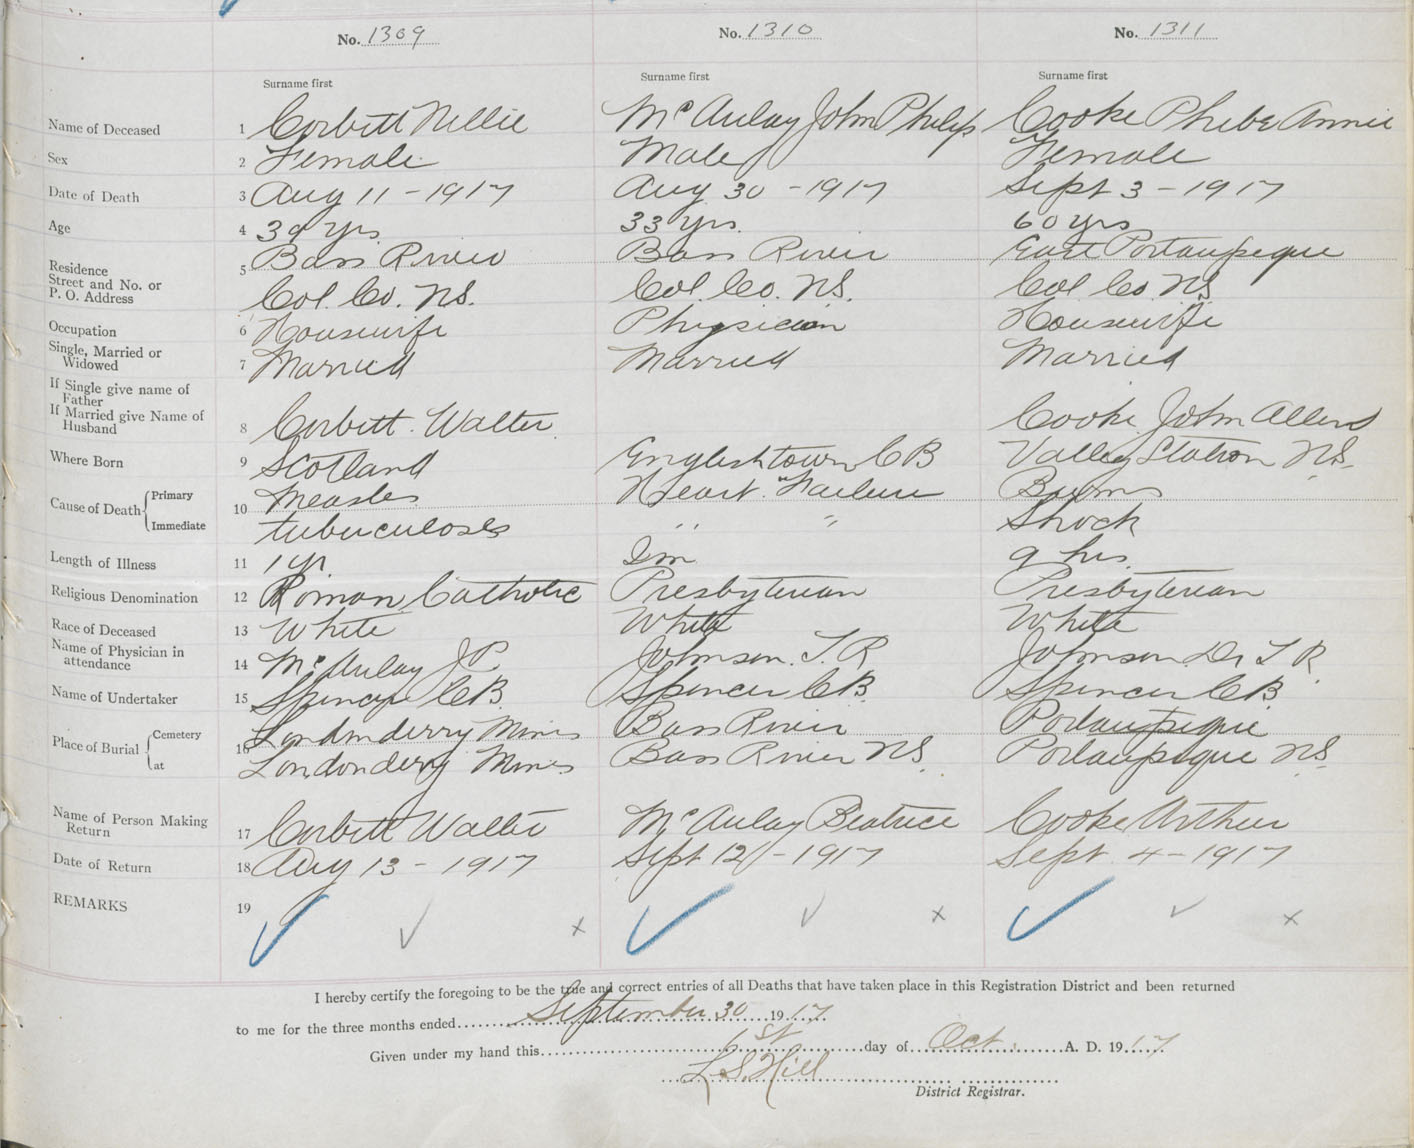 No. 1309 No. 1310 No. 1311
Surname first Surname first Surname first
Name of Deceased 1 Corbett Nellie McAulay John Philip Cooke Phebe Annie
Sex 2 Female Male Female
Date of Death 3 Aug 11 - 1917 Aug 30 - 1917 Sept 3 - 1917
Age 4 39 yrs 33 yrs. 60 yrs
Residence 5 Bass River Bass River East Portaupeque
Street and No. or
P. O. Address Col. Co. N.S. Col. Co. N.S. Col Co. N.S
Occupation 6 Housewife Physician Housewife
Single, Married or
Widowed 7 Married Married Married
If Single give name of
Father
If Married give Name of
Husband 8 Corbett. Walter Cooke John Allen
Where Born 9 Scotland Englishtown C B Valley Station N.S.
Cause of Death Primary 10 Measles Heart Failure Burns
Immediate tuberculoses " " Shock
Length of Illness 11 1 yr 9 hrs.
Religious Denomination 12 Roman Catholic Presbyterian Presbyterian
Race of Deceased 13 White White White
Name of Physician in
attendance 14 McAulay J P. Johnson. T. R Johnson Dr T R.
Name of Undertaker 15 Spencer C B. Spencer C B. Spencer C B.
Place of Burial Cemetery 16 Londonderry Mines Bass River Portaupeque
at Londonderry Mines Bass River N.S. Portaupeque N.S.
Name of Person Making
Return 17 Corbett Walter McAulay Beatrice Cooke Arthur
Date of Return 18 Aug 13 - 1917 Sept 12 - 1917 Sept. 4 - 1917
REMARKS 19
I hereby certify the foregoing to be the true and correct entries of all Deaths that have taken place in this Registration District and been returned
to me for the three months ended September 30 1917
Given under my hand this st day of Oct. A. D. 1917
L S. Hill
District Registrar.